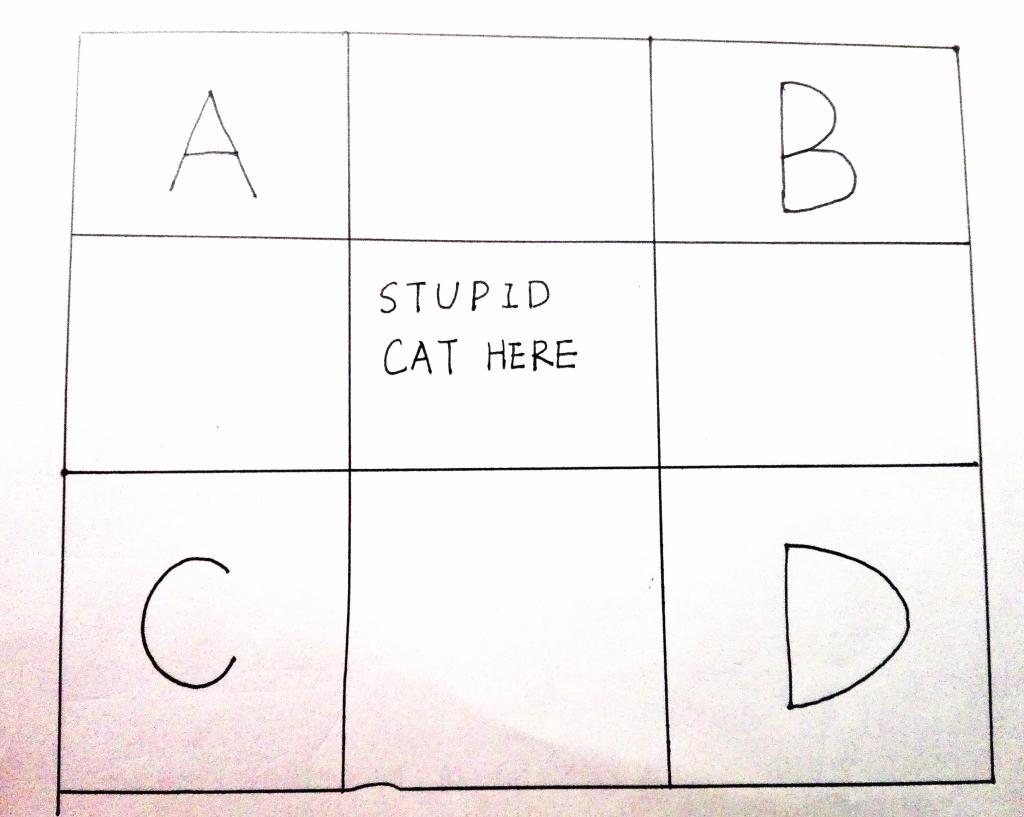 A B
STUPID
CAT HERE
C D